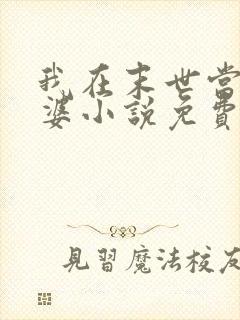 我在末世當
婆小說免費
見習魔法校友